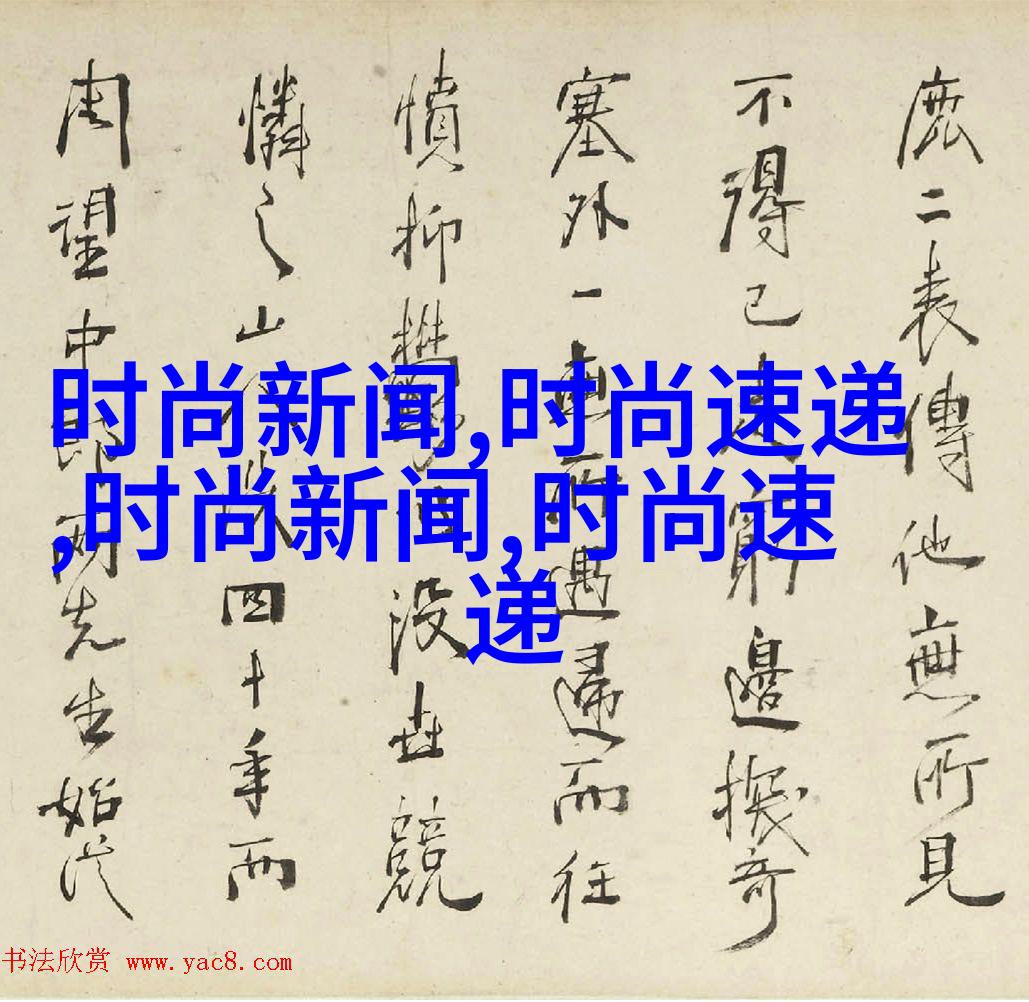 鹿二表傳他無所見
不得已走窮邊奇
塞外一所遇而往
憤抑鬱沒世競
憐之山四十年而
周望中郎兩先生始從
时尚新闻,时尚速递
,时尚新闻,时尚速
递
书法欣赏 www.yac8.com